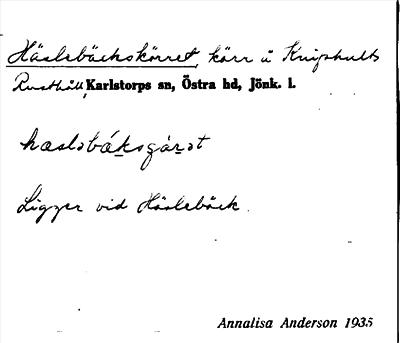 Häslebäckskärret, kärr å Kniphults
Rusthåll, Karlstorps sn, Östra hd, Jönk. l.
hæsləbáksçárət
Ligger vid Häslebäck.
Annalisa Anderson 1935